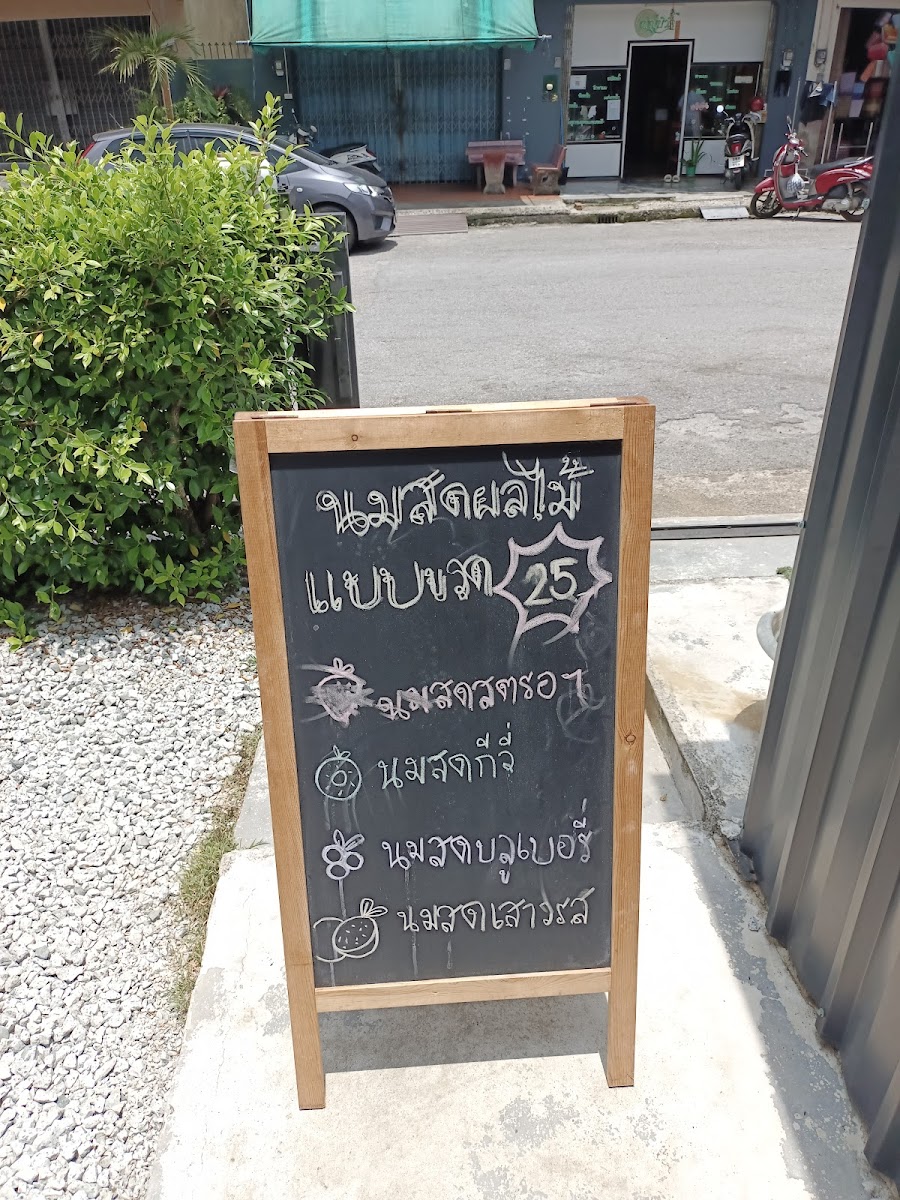 นมสดผลไม้
แบบขวด 25
นมสดสตรอฯ
นมสดกีวี่
นมสดบลูเบอรี่
นมสดเสาวรส